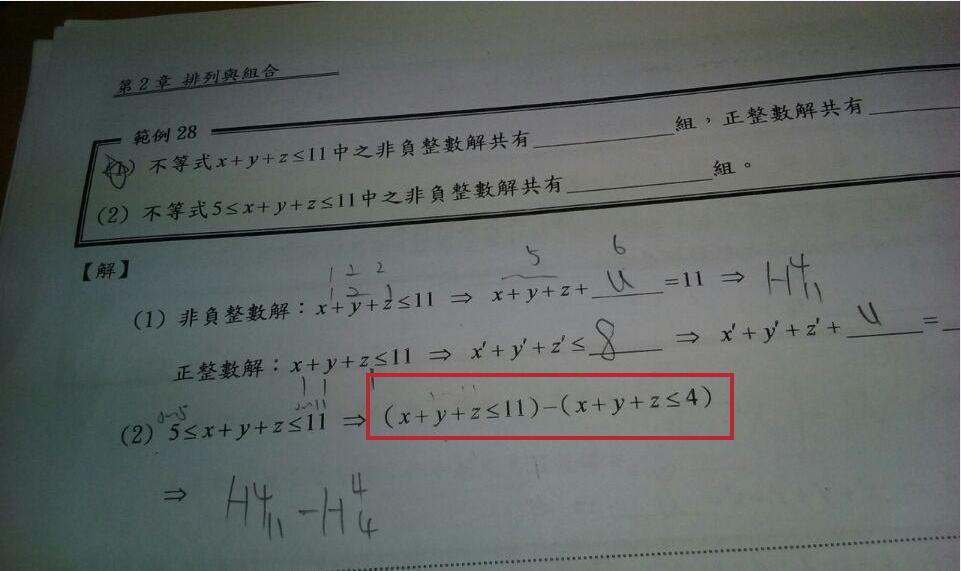 第2章 排列與組合
範例 28
(1) 不等式 x+y+z≤11 中之非負整數解共有________組，正整數解共有________
(2) 不等式 5≤x+y+z≤11 中之非負整數解共有________組。
【解】
5 6
1 2 2
(1) 非負整數解：x+y+z≤11 ⇒ x+y+z+ u =11 ⇒ H⁴₁₁
正整數解：x+y+z≤11 ⇒ x′+y′+z′≤ 8 ⇒ x′+y′+z′+ u =
1 1 1
0~5 0~11
(2) 5≤x+y+z≤11 ⇒ (x+y+z≤11)−(x+y+z≤4)
⇒ H⁴₁₁ − H⁴₄